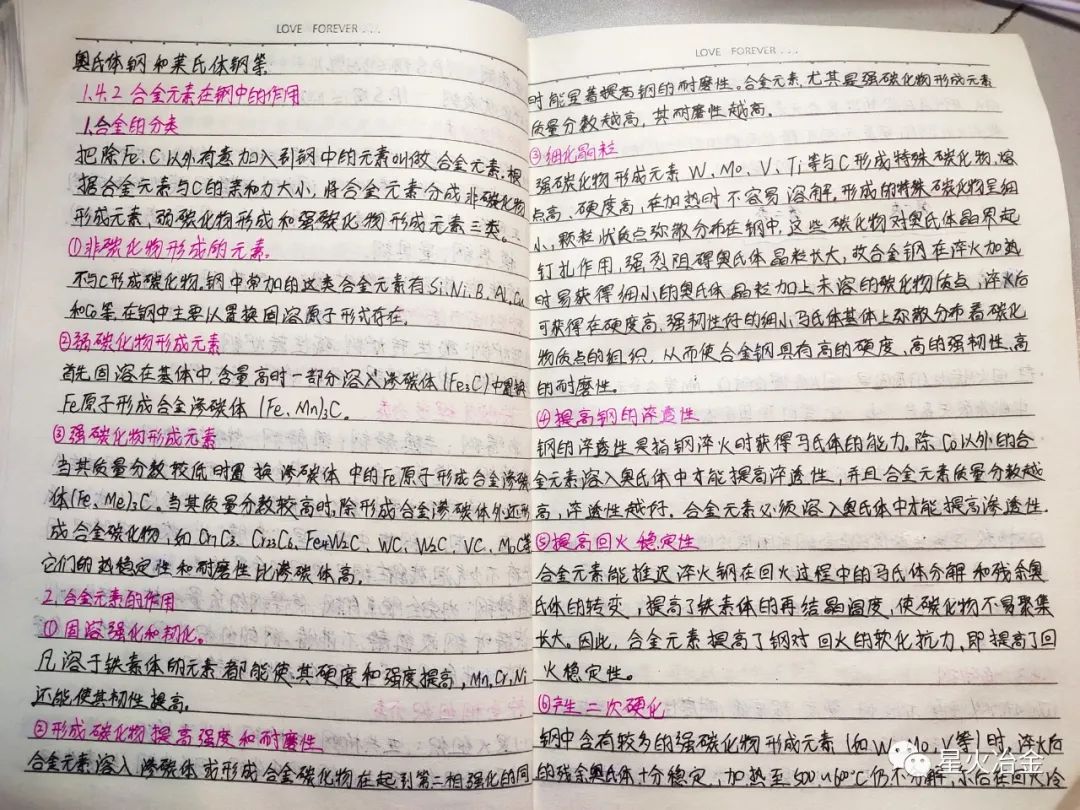 LOVE FOREVER...
奥氏体钢和莱氏体钢等.
1.4.2 合金元素在钢中的作用
1.合金的分类
把除Fe、C以外有意加入到钢中的元素叫做合金元素.根
据合金元素与C的亲和力大小,将合金元素分成非碳化物
形成元素、弱碳化物形成和强碳化物形成元素三类。
①非碳化物形成的元素。
不与C形成碳化物.钢中常加的这类合金元素有Si、Ni、B、Al、Cu
和Co等,在钢中主要以置换固溶原子形式存在.
②弱碳化物形成元素
首先固溶在基体中,含量高时一部分溶入渗碳体(Fe3C)中置换
Fe原子形成合金渗碳体 (Fe、Mn)3C。
③强碳化物形成元素
当其质量分数较低时置换渗碳体中的Fe原子形成合金渗碳
体(Fe、Me)3C。当其质量分数较高时,除形成合金渗碳体外还形
成合金碳化物,如Cr7C3、Cr23C6、Fe4W2C、WC、W2C、VC、MoC等
它们的热稳定性和耐磨性比渗碳体高。
2.合金元素的作用
①固溶强化和韧化。
凡溶于铁素体的元素都能使其硬度和强度提高,Mn、Cr、Ni
还能使其韧性提高。
②形成碳化物提高强度和耐磨性
合金元素溶入渗碳体或形成合金碳化物在起到第二相强化的同
LOVE FOREVER...
时能显着提高钢的耐磨性。合金元素,尤其是强碳化物形成元素
质量分数越高,其耐磨性越高.
③细化晶粒
强碳化物形成元素 W、Mo、V、Ti等与C形成特殊碳化物.熔
点高、硬度高,在加热时不容易溶解.形成的特殊碳化物呈细
小,颗粒状质点弥散分布在钢中,这些碳化物对奥氏体晶界起
钉扎作用,强烈阻碍奥氏体晶粒长大,故合金钢在淬火加热
时易获得细小的奥氏体晶粒加上未溶的碳化物质点,淬火后
可获得在硬度高、强韧性好的细小马氏体基体上弥散分布着碳化
物质点的组织,从而使合金钢具有高的硬度、高的强韧性、高
的耐磨性。
④提高钢的淬透性
钢的淬透性是指钢淬火时获得马氏体的能力.除Co以外的合
金元素溶入奥氏体中才能提高淬透性,并且合金元素质量分数越
高,淬透性越好.合金元素必须溶入奥氏体中才能提高渗透性.
⑤提高回火稳定性
合金元素能推迟淬火钢在回火过程中的马氏体分解和残余奥
氏体的转变,提高了铁素体的再结晶温度,使碳化物不易聚集
长大。因此,合金元素提高了钢对回火的软化抗力,即提高了回
火稳定性。
⑥产生二次硬化
钢中含有较多的强碳化物形成元素(如W、Mo、V等)时,淬火后
的残余奥氏体十分稳定,加热至500~60℃仍不分解,而后在回火冷
星火冶金